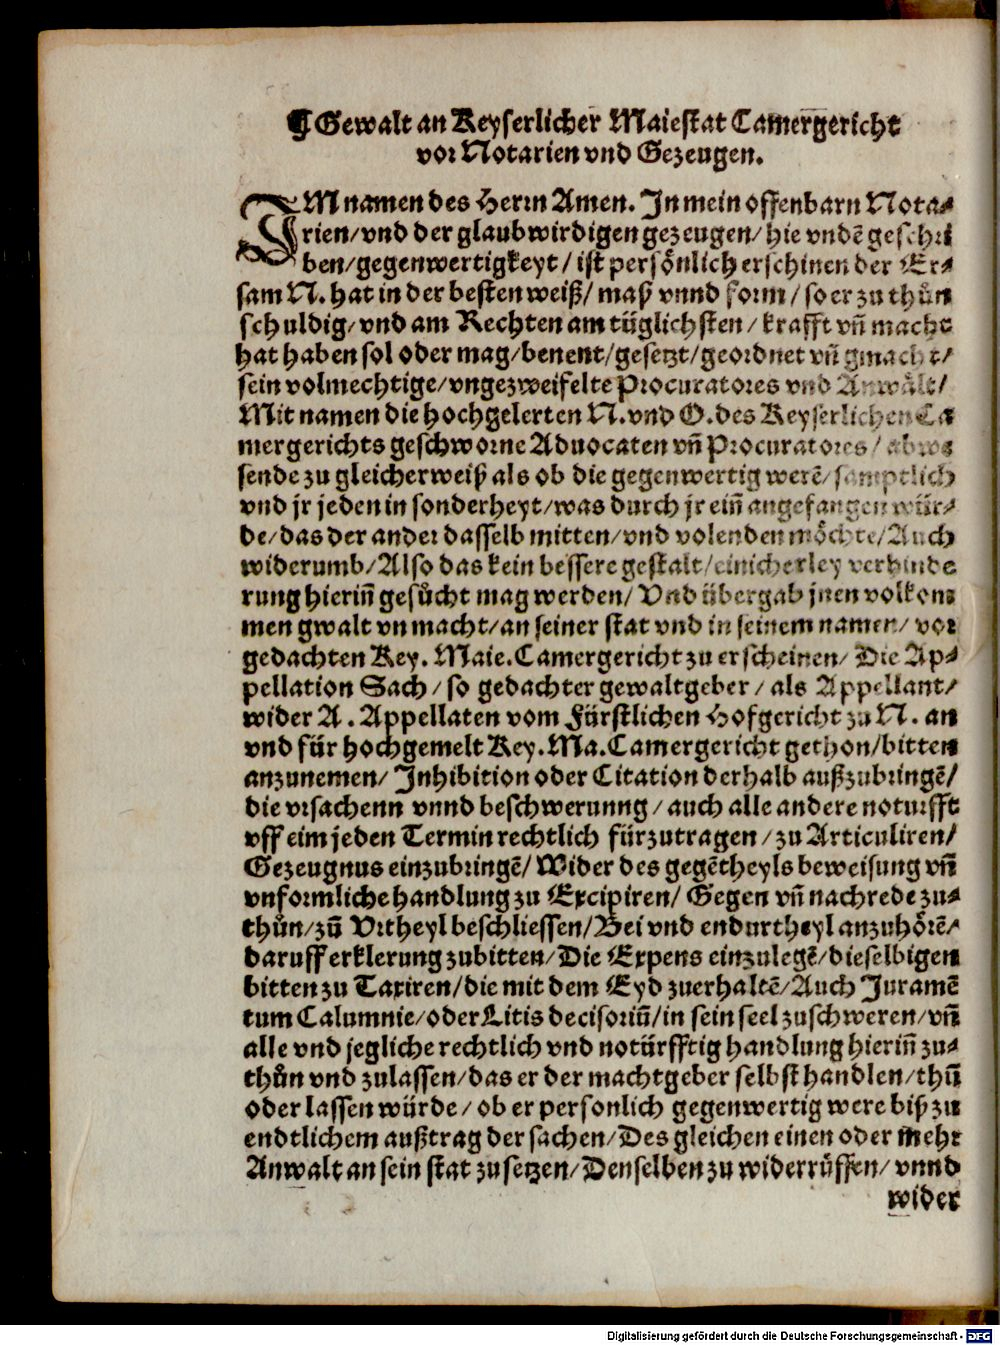 ¶ Gewalt an Keyserlicher Maiestat Camergericht
vor Notarien vnd Gezeugen.
IM namen des Herrn Amen. In mein offenbarn Nota⸗
rien/vnd der glaubwirdigen gezeugen/hie vndẽ geschri
ben/gegenwertigkeyt/ist persönlich erschinen der Er⸗
sam N. hat in der besten weiß/ maß vnnd form/so er zu thůn
schuldig/vnd am Rechten am tüglichsten/krafft vñ macht
hat haben sol oder mag/benent/gesetzt/geordnet vñ gmacht/
sein volmechtige/vngezweifelte Procuratores vnd Anwält/
Mit namen die hochgelerten N. vnd O. des Keyserlichen Ca
mergerichts geschworne Aduocaten vñ Procuratores/abwe
sende zu gleicherweiß als ob die gegenwertig werẽ/samptlich
vnd jr jeden in sonderheyt/was durch jr eiñ angefangen wür⸗
de/das der ander dasselb mitten/vnd volenden möchte/Auch
widerumb/Also das kein bessere gestalt/einicherley verhinde
rung hieriñ gesůcht mag werden/ Vnd übergab jnen volkom
men gwalt vn macht/an seiner stat vnd in seinem namen/ vor
gedachten Key. Maie. Camergericht zu erscheinen/ Die Ap⸗
pellation Sach/so gedachter gewaltgeber/als Appellant/
wider A. Appellaten vom Fürstlichen Hofgericht zu N. an
vnd für hochgemelt Key. Ma. Camergericht gethon/bitten
anzunemen/ Inhibition oder Citation derhalb außzubringẽ/
die vrsachenn vnnd beschwerunng/auch alle andere noturfft
vff eim jeden Termin rechtlich fürzutragen/zu Articuliren/
Gezeugnus einzubringẽ/ Wider des gegẽtheyls beweisung vñ
vnformliche handlung zu Excipiren/ Gegen vñ nachrede zu⸗
thůn/zů Vrtheyl beschliessen/Bei vnd endurtheyl anzuhörẽ/
daruff erklerung zubitten/Die Expens einzulegẽ/dieselbigen
bitten zu Taxiren/die mit dem Eyd zuerhaltẽ/Auch Juramẽ
tum Calumnie/oder Litis decisoriũ/in sein seel zuschweren/vñ
alle vnd jegliche rechtlich vnd notürfftig handlung hieriñ zu⸗
thůn vnd zulassen/das er der machtgeber selbst handlen/thũ
oder lassen würde/ob er personlich gegenwertig were biß zu
endtlichem außtrag der sachen/Des gleichen einen oder mehr
Anwalt an sein stat zusetzen/Denselben zu widerrůffen/vnnd
wider
Digitalisierung gefördert durch die Deutsche Forschungsgemeinschaft - DFG